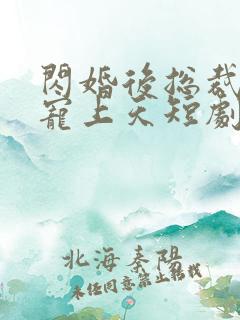 閃婚後總裁
寵上天短劇
北海秦陽
未任同意禁止轉載